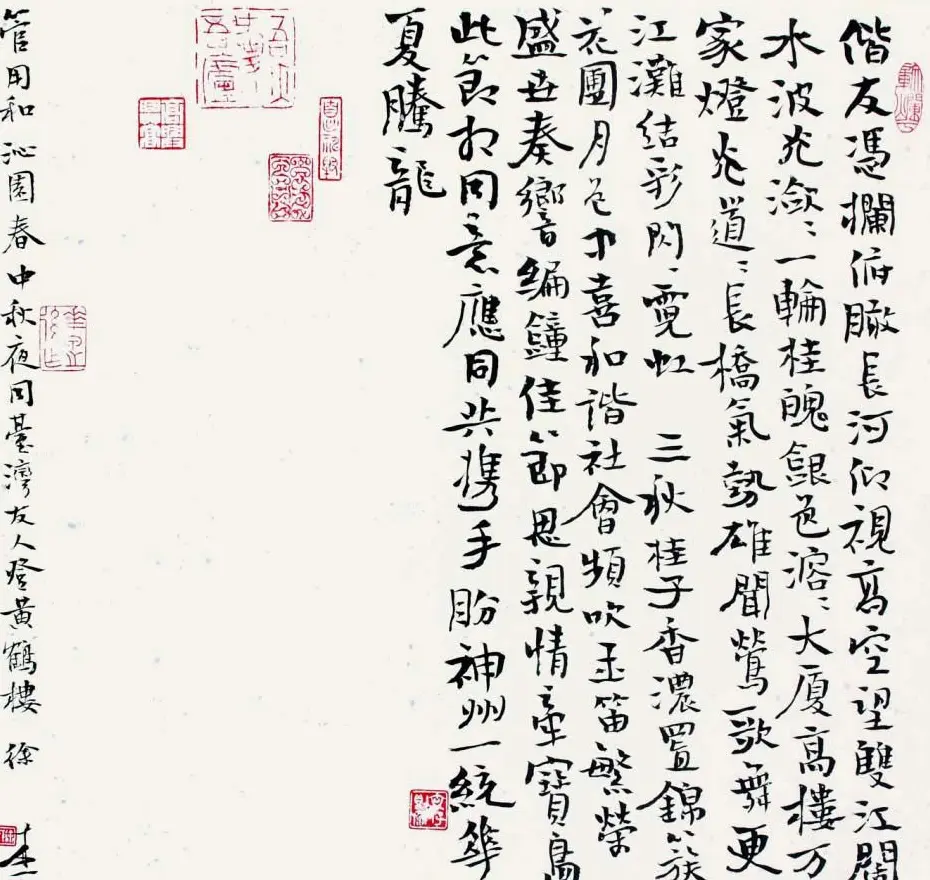 偕友馮欄俯瞰長河仰視高空望雙江闊
水波光瀲〻一輪桂魄銀色溶〻大廈高樓万
家燈光道〻長橋氣勢雄聞鶯歌舞更
江灘結彩閃〻霓虹 三秋桂子香濃置錦簇
花團月色中喜和諧社會頻吹玉笛繁榮
盛世奏響編鐘佳節思親情牽寶島
此節相同意應同共携手盼神州一統華
夏騰龍
管用和沁園春中秋夜同臺灣友人登黃鶴樓 徐